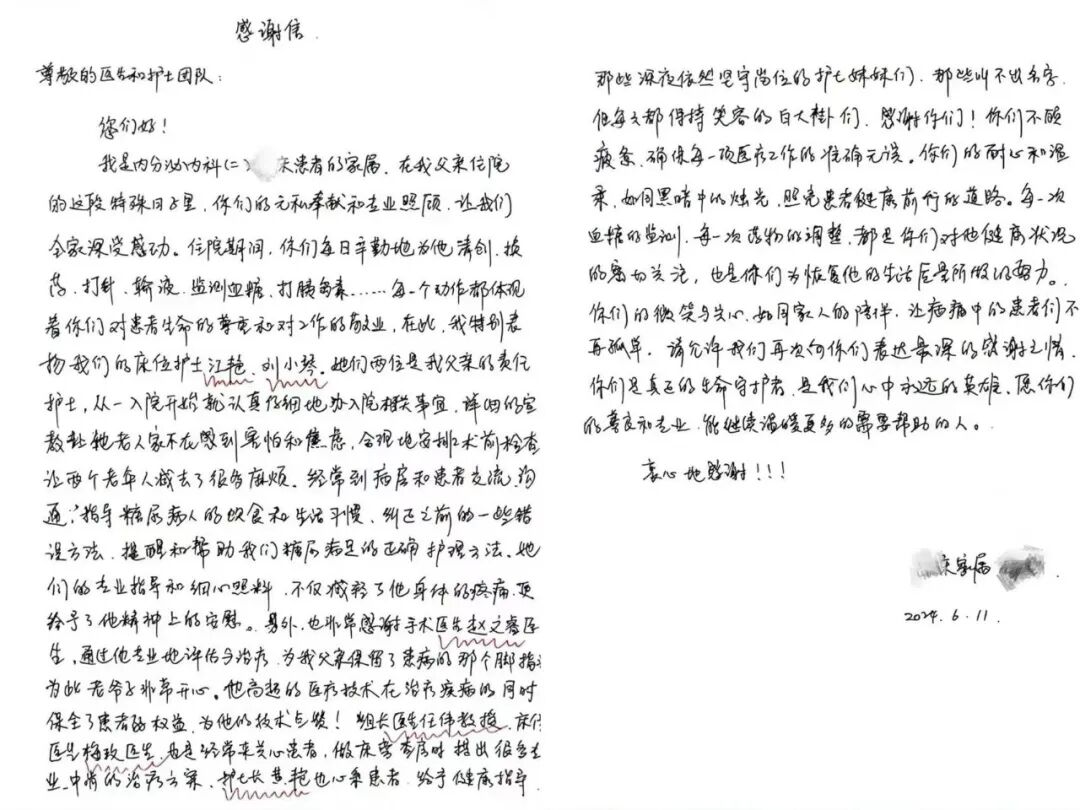 感谢信.
尊敬的医生和护士团队:
您们好!
我是内分泌内科(二)床患者的家属,在我父亲住院
的这段特殊日子里,你们的无私奉献和专业照顾,让我们
全家深受感动。住院期间,你们每日辛勤地为他清创、换
药、打针、输液、监测血糖、打胰岛素……每一个动作都体现
着你们对患者生命的尊重和对工作的敬业,在此,我特别表
扬我们的床位护士江艳、刘小琴。她们两位是我父亲的责任
护士,从一入院开始就认真仔细地办入院相关事宜,详细的宣
教让她老人家不在感到害怕和焦虑,合理地安排术前检查
让两个老年人减去了很多麻烦。经常到病房和患者交流,沟
通,指导糖尿病人的饮食和生活习惯,纠正之前的一些错
误方法,提醒和帮助我们糖尿病足的正确护理方法。她
们的专业指导和细心照料,不仅减轻了他身体的疼痛,更
给予了他精神上的安慰。另外,也非常感谢手术医生赵文医
生,通过他专业地评估与治疗,为我父亲保留了患病的那个脚指,
为此老爷子非常开心。他高超的医疗技术在治疗疾病的同时
保全了患者的权益,为他的技术点赞!组长医生任伟教授,床位
医生梅玫医生,也是经常来关心患者,做床旁查房时提出很多专
业、中肯的治疗方案,护士长艳也心系患者,给予健康指导,
那些深夜依然坚守岗位的护士妹妹们,那些叫不出名字,
但每天都保持笑容的白大卦们,感谢你们!你们不顾
疲惫,确保每一项医疗工作的准确无误。你们的耐心和温
柔,如同黑暗中的烛光,照亮患者健康前行的道路。每一次
血糖的监测,每一次药物的调整,都是你们对他健康状况
的密切关注,也是你们为恢复他的生活质量所做的努力。
你们的微笑与关心,如同家人的陪伴,让病痛中的患者们不
再孤单,请允许我们再次向你们表达最深的感谢之情,
你们是真正的生命守护者,是我们心中永远的英雄。愿你们
的善良和专业,能继续温暖更多的需要帮助的人。
衷心地感谢!!!
床家属
2024.6.11.